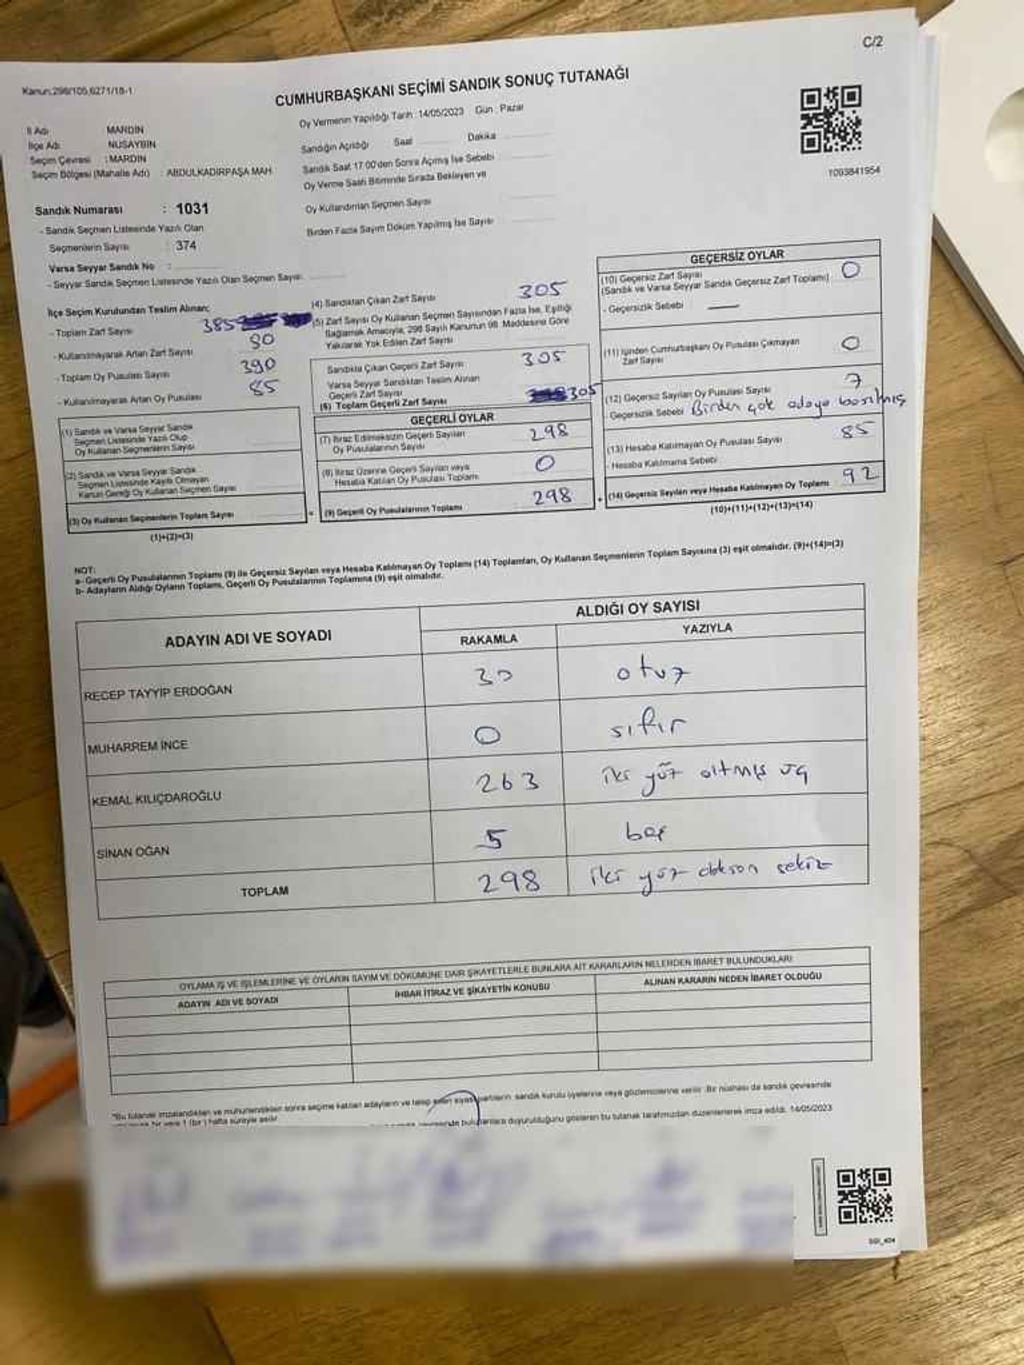 C/2
Kanun:298/105,6271/18-1
CUMHURBAŞKANI SEÇİMİ SANDIK SONUÇ TUTANAĞI
Oy Vermenin Yapıldığı Tarih : 14/05/2023 Gün : Pazar
İl Adı MARDİN
İlçe Adı NUSAYBİN
Seçim Çevresi : MARDİN
Seçim Bölgesi (Mahalle Adı) : ABDULKADİRPAŞA MAH
Sandığın Açıldığı Saat Dakika
Sandık Saat 17:00'den Sonra Açılmış İse Sebebi
Oy Verme Saati Bitiminde Sırada Bekleyen ve
Oy Kullandırılan Seçmen Sayısı
Birden Fazla Sayım Döküm Yapılmış İse Sayısı
1093841954
Sandık Numarası : 1031
- Sandık Seçmen Listesinde Yazılı Olan
Seçmenlerin Sayısı : 374
Varsa Seyyar Sandık No :
- Seyyar Sandık Seçmen Listesinde Yazılı Olan Seçmen Sayısı
İlçe Seçim Kurulundan Teslim Alınan;
- Toplam Zarf Sayısı 385
- Kullanılmayarak Artan Zarf Sayısı 80
- Toplam Oy Pusulası Sayısı 390
- Kullanılmayarak Artan Oy Pusulası 85
(1) Sandık ve Varsa Seyyar Sandık
Seçmen Listesinde Yazılı Olup
Oy Kullanan Seçmenlerin Sayısı
(2) Sandık ve Varsa Seyyar Sandık
Seçmen Listesinde Kayıtlı Olmayan
Kanun Gereği Oy Kullanan Seçmen Sayısı
(3) Oy Kullanan Seçmenlerin Toplam Sayısı
(1)+(2)=(3)
(4) Sandıktan Çıkan Zarf Sayısı 305
(5) Zarf Sayısı Oy Kullanan Seçmen Sayısından Fazla İse, Eşitliği
Sağlamak Amacıyla, 298 Sayılı Kanunun 98. Maddesine Göre
Yakılarak Yok Edilen Zarf Sayısı
Sandıkta Çıkan Geçerli Zarf Sayısı 305
Varsa Seyyar Sandıktan Teslim Alınan
Geçerli Zarf Sayısı
(6) Toplam Geçerli Zarf Sayısı 305
GEÇERLİ OYLAR
(7) İtiraz Edilmeksizin Geçerli Sayılan
Oy Pusulalarının Sayısı 298
(8) İtiraz Üzerine Geçerli Sayılan veya
Hesaba Katılan Oy Pusulası Toplamı 0
(9) Geçerli Oy Pusulalarının Toplamı 298
GEÇERSİZ OYLAR
(10) Geçersiz Zarf Sayısı
(Sandık ve Varsa Seyyar Sandık Geçersiz Zarf Toplamı) 0
- Geçersizlik Sebebi
(11) İçinden Cumhurbaşkanı Oy Pusulası Çıkmayan
Zarf Sayısı 0
(12) Geçersiz Sayılan Oy Pusulası Sayısı 7
- Geçersizlik Sebebi Birden çok adaya basılmış
(13) Hesaba Katılmayan Oy Pusulası Sayısı 85
- Hesaba Katılmama Sebebi
(14) Geçersiz Sayılan veya Hesaba Katılmayan Oy Toplamı 92
(10)+(11)+(12)+(13)=(14)
NOT:
a- Geçerli Oy Pusulalarının Toplamı (9) ile Geçersiz Sayılan veya Hesaba Katılmayan Oy Toplamı (14) Toplamları, Oy Kullanan Seçmenlerin Toplam Sayısına (3) eşit olmalıdır. (9)+(14)=(3)
b- Adayların Aldığı Oyların Toplamı, Geçerli Oy Pusulalarının Toplamına (9) eşit olmalıdır.
ADAYIN ADI VE SOYADI
ALDIĞI OY SAYISI
RAKAMLA YAZIYLA
RECEP TAYYİP ERDOĞAN 30 otuz
MUHARREM İNCE 0 sıfır
KEMAL KILIÇDAROĞLU 263 iki yüz altmış üç
SİNAN OĞAN 5 beş
TOPLAM 298 iki yüz doksan sekiz
OYLAMA İŞ VE İŞLEMLERİNE VE OYLARIN SAYIM VE DÖKÜMÜNE DAİR ŞİKAYETLERLE BUNLARA AİT KARARLARIN NELERDEN İBARET BULUNDUKLARI
ADAYIN ADI VE SOYADI İHBAR İTİRAZ VE ŞİKAYETİN KONUSU ALINAN KARARIN NEDEN İBARET OLDUĞU
*Bu tutanak imzalandıktan ve mühürlendikten sonra seçime katılan adayların ve talep eden siyasi partilerin sandık kurulu üyelerine veya gözlemcilerine verilir. Bir nüshası da sandık çevresinde
bir yere 1 (bir) hafta süreyle asılır.
bulunanlara duyurulduğunu gösteren bu tutanak tarafımızdan düzenlenerek imza edildi. 14/05/2023